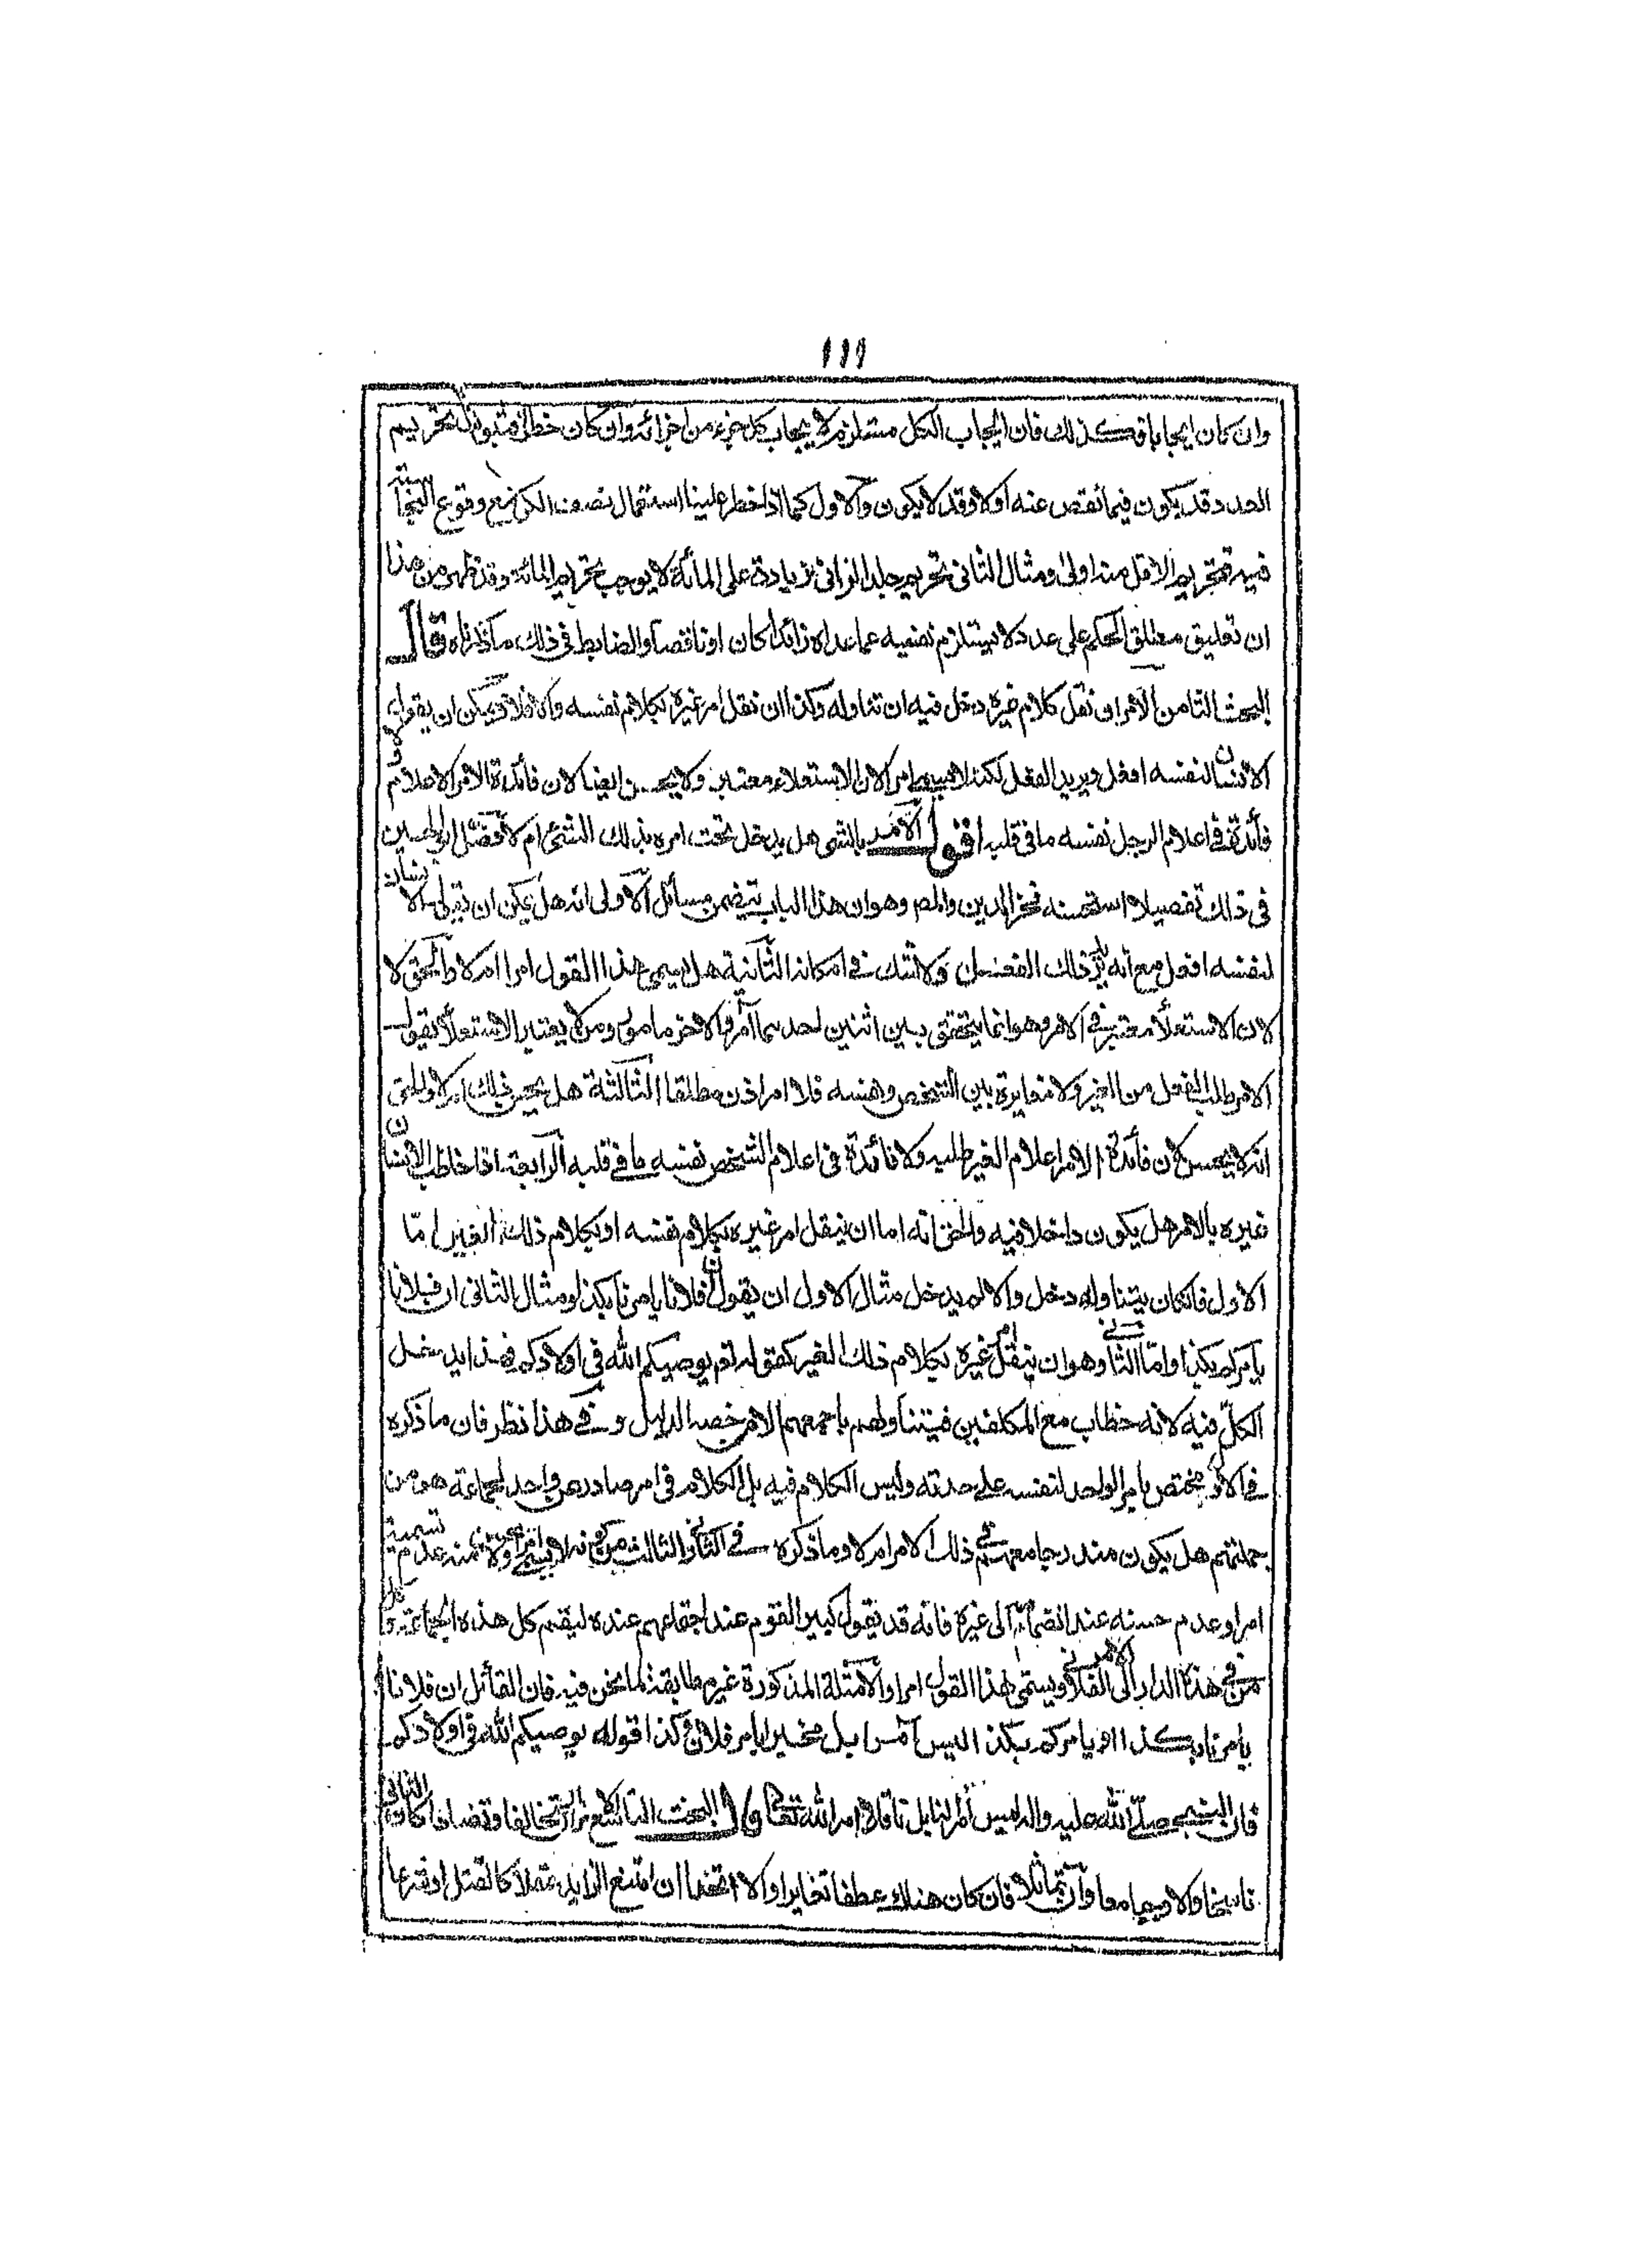 ١١١
وان كان ايجابا فكذلك فان ايجاب الكل مستلزم لايجاب كل جزء من اجزائه وان كان خطابه تحريم
العدد قد يكون فيما نقص عنه اولا وقد لا يكون والاول كما اذا حظر علينا استعمال نصف الكر مع وقوع النجاسة
فيه فتحريم الاقل منه اولى ومثال الثانى تحريم جلد الزانى بزيادة على المائة لا يوجب تحريم المائة وقد ظهر من هذا
ان تعليق مطلق الحكم على عدد لا يستلزم نفيه عما عداه زائدا كان او ناقصا والضابط فى ذلك ما ذكرناه قال
البحث الثامن الآمر ان نقل كلام غيره دخل فيه ان تناوله وكذا ان نقل امر غيره بكلام نفسه والا فلا ويمكن ان يقول
الانسان لنفسه افعل ويريد الفعل لكنه لا يسمى امرا لان الاستعلاء معتبر ولا يحسن ايضا لان فائدة الامر الاعلام ولا
فائدة فى اعلام الرجل نفسه ما فى قلبه اقول الآمر بالشى هل يدخل تحت امره بذلك الشئ ام لا فصّل ابو الحسين
فى ذلك تفصيلا استحسنه فخر الدين والمصر وهو ان هذا الباب يتضمن مسائل الاولى انه هل يمكن ان يقول الانسان
لنفسه افعل مع انه يريد ذلك الفعل ولا شك فى امكانه الثانية هل يسمى هذا القول امرا ام لا والحق لا
لان الاستعلاء معتبر فى الامر وهو انما يتحقق بين اثنين احدهما آمر والاخر مامور ومن لا يعتبر الاستعلاء يقول
الامر طلب الفعل من الغير ولا مغايرة بين الشخص ونفسه فلا امر اذن مطلقا الثالثة هل يحسن ذلك ام لا والحق
انه لا يحسن لان فائدة الامر اعلام الغير طلبه ولا فائدة فى اعلام الشخص نفسه ما فى قلبه الرابعة اذا خاطب الانسان
غيره بالامر هل يكون داخلا فيه والحق انه اما ان ينقل امر غيره بكلام نفسه او بكلام ذلك الغير امّا
الاول فان كان يتناوله دخل والا لم يدخل مثال الاول ان يقول ان فلانا يامرنا بكذا ومثال الثانى ان فلانا
يامركم بكذا وامّا الثانى وهو ان ينقل امر غيره بكلام ذلك الغير كقوله تع يوصيكم الله فى اولادكم فهذا يدخل
الكلّ فيه لانه خطاب مع المكلفين فيتناولهم باجمعهم الا من خصه الدليل وفى هذا نظر فان ما ذكره
فى الاول مختص بامر الواحد لنفسه على حدته وليس الكلام فيه بل الكلام فى امر صادر من واحد لجماعة هو من
جملتهم هل يكون مندرجا معهم فى ذلك الامر ام لا وما ذكره فى الثانى والثالث من انه لا يسمى امرا ولا يحسن منه عدم تسمية
امرا وعدم حسنه عند انضمامه الى غيره فانه قد يقول كبير القوم عند اجتماعهم عنده ليقم كل هذه الجماعة وكل
من فى هذه الدار الى الامر الفلانى ويسمى هذا القول امرا والامثلة المذكورة غير مطابقة لما نحن فيه فان القائل ان فلانا
يامرنا بكذا او يامركم بكذا ليس آمرا بل مخبرا بامر فلان وكذا قوله يوصيكم الله فى اولادكم
فان النبى صلّى الله عليه واله ليس آمرا لنا بل ناقلا امر الله تعالى قال البحث التاسع الامران ان تخالفا وتضادا كان الثانى
ناسخا والا وجبا معا وان تماثلا فان كان هناك عطف تغايرا والا اتحدا ان امتنع الزايد عقلا كالقتل او شرعا